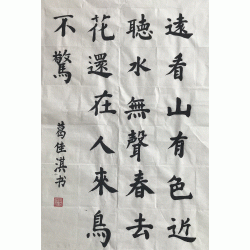 遠看山有色近
聽水無聲春去
花還在人來鳥
不驚
葛佳淇书